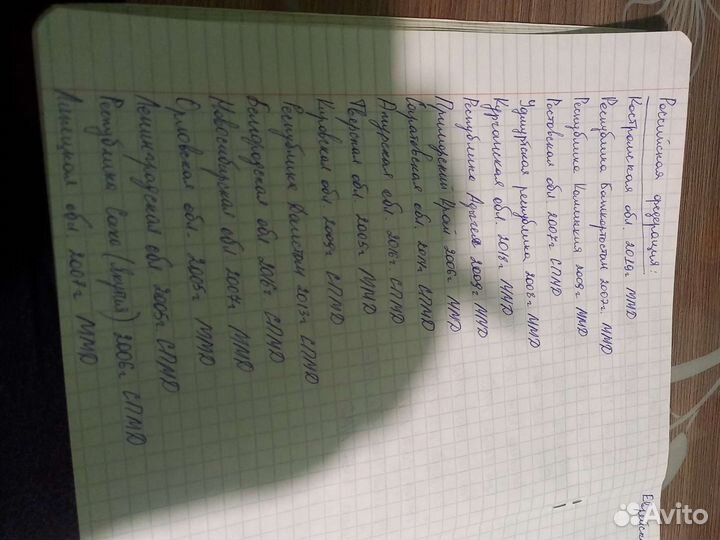 Российская федерация:
Костромская обл. 2019г ММД
Республика Башкортостан 2007г. ММД
Республика Калмыкия 2009г ММД
Ростовская обл 2007г СПМД
Удмуртская республика 2008г ММД
Курганская обл. 2018г ММД
Республика Адыгея 2009г ММД
Приморский край 2006г ММД
Саратовская обл. 2014г СПМД
Амурская обл. 2016г СПМД
Тверская обл. 2005г ММД
Кировская обл 2009г СПМД
Республика Дагестан 2013г СПМД
Белгородская обл 2016г СПМД
Новосибирская обл 2007г ММД
Орловская обл. 2005г ММД
Ленинградская обл 2005г СПМД
Республика Саха (Якутия) 2006г СПМД
Липецкая обл 2007г ММД
Еврейск
Avito